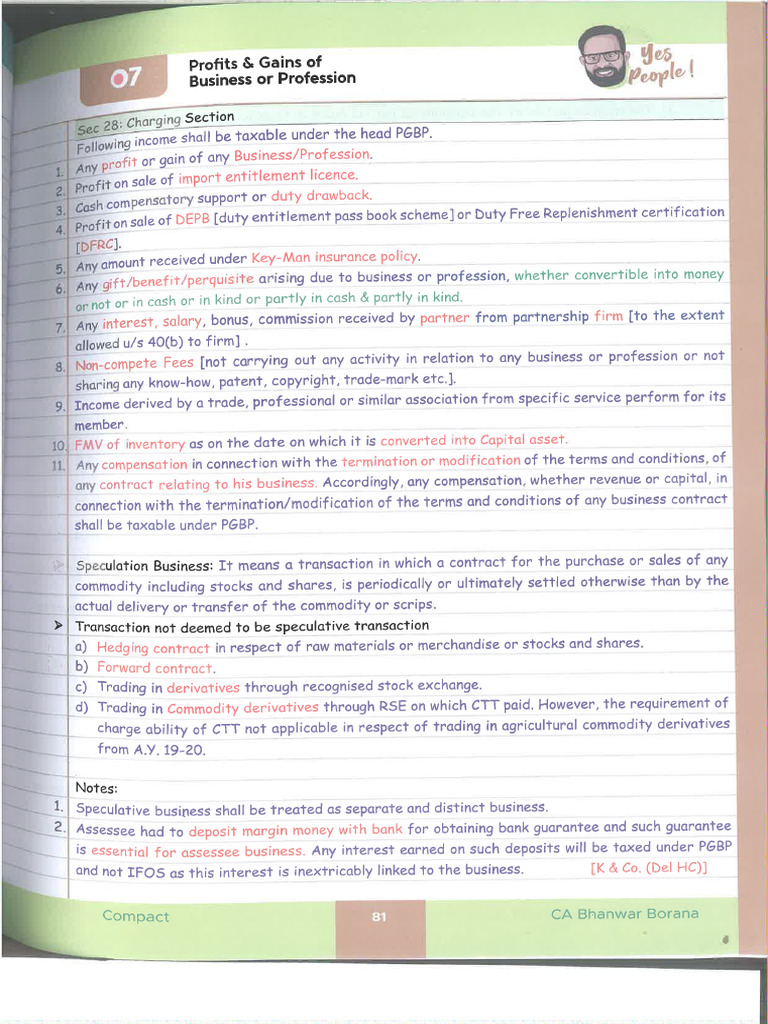 07
Profits & Gains of
Business or Profession
Yes
People!
Sec 28: Charging Section
Following income shall be taxable under the head PGBP.
1. Any profit or gain of any Business/Profession.
2. Profit on sale of import entitlement licence.
3. Cash compensatory support or duty drawback.
4. Profit on sale of DEPB [duty entitlement pass book scheme] or Duty Free Replenishment certification
[DFRC].
5. Any amount received under Key-Man insurance policy.
6. Any gift/benefit/perquisite arising due to business or profession, whether convertible into money
or not or in cash or in kind or partly in cash & partly in kind.
7. Any interest, salary, bonus, commission received by partner from partnership firm [to the extent
allowed u/s 40(b) to firm] .
8. Non-compete Fees [not carrying out any activity in relation to any business or profession or not
sharing any know-how, patent, copyright, trade-mark etc.].
9. Income derived by a trade, professional or similar association from specific service perform for its
member.
10. FMV of inventory as on the date on which it is converted into Capital asset.
11. Any compensation in connection with the termination or modification of the terms and conditions, of
any contract relating to his business. Accordingly, any compensation, whether revenue or capital, in
connection with the termination/modification of the terms and conditions of any business contract
shall be taxable under PGBP.
➢ Speculation Business: It means a transaction in which a contract for the purchase or sales of any
commodity including stocks and shares, is periodically or ultimately settled otherwise than by the
actual delivery or transfer of the commodity or scrips.
➢ Transaction not deemed to be speculative transaction
a) Hedging contract in respect of raw materials or merchandise or stocks and shares.
b) Forward contract.
c) Trading in derivatives through recognised stock exchange.
d) Trading in Commodity derivatives through RSE on which CTT paid. However, the requirement of
charge ability of CTT not applicable in respect of trading in agricultural commodity derivatives
from A.Y. 19-20.
Notes:
1. Speculative business shall be treated as separate and distinct business.
2. Assessee had to deposit margin money with bank for obtaining bank guarantee and such guarantee
is essential for assessee business. Any interest earned on such deposits will be taxed under PGBP
and not IFOS as this interest is inextricably linked to the business. [K & Co. (Del HC)]
Compact 81 CA Bhanwar Borana